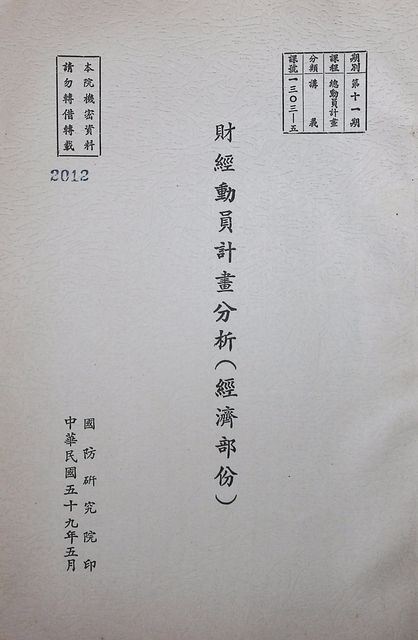 期別 第十一期
課程 總動員計畫
分類 講義
課號 一三〇三—五
財經動員計畫分析（經濟部份）
本院機密資料
請勿轉借轉載
2012
國防研究院印
中華民國五十九年五月